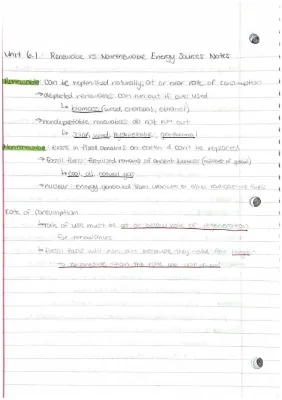 Unit 6.1: Renewable vs Nonrenewable Energy Sources Notes
Renewable: can be replenished naturally, at or near rate of consumption
→ depleted renewables can run out if over used
↳ biomass (wood, charcoal, ethanol)
→ nondepletable renewables do not run out
↳ solar, wind, hydroelectric, geothermal
Nonrenewable: exists in fixed amounts on earth & can't be replaced
→ fossil fuels: fossilized remains of ancient biomass
↳ coal, oil, natural gas
→ nuclear: energy generated from uranium or other radioactive fuels
Rate of Consumption
↳ rate of use must be at or below rate of regeneration
for renewables
↳ fossil fuels will run out because they take far longer
to regenerate than the rate we use them